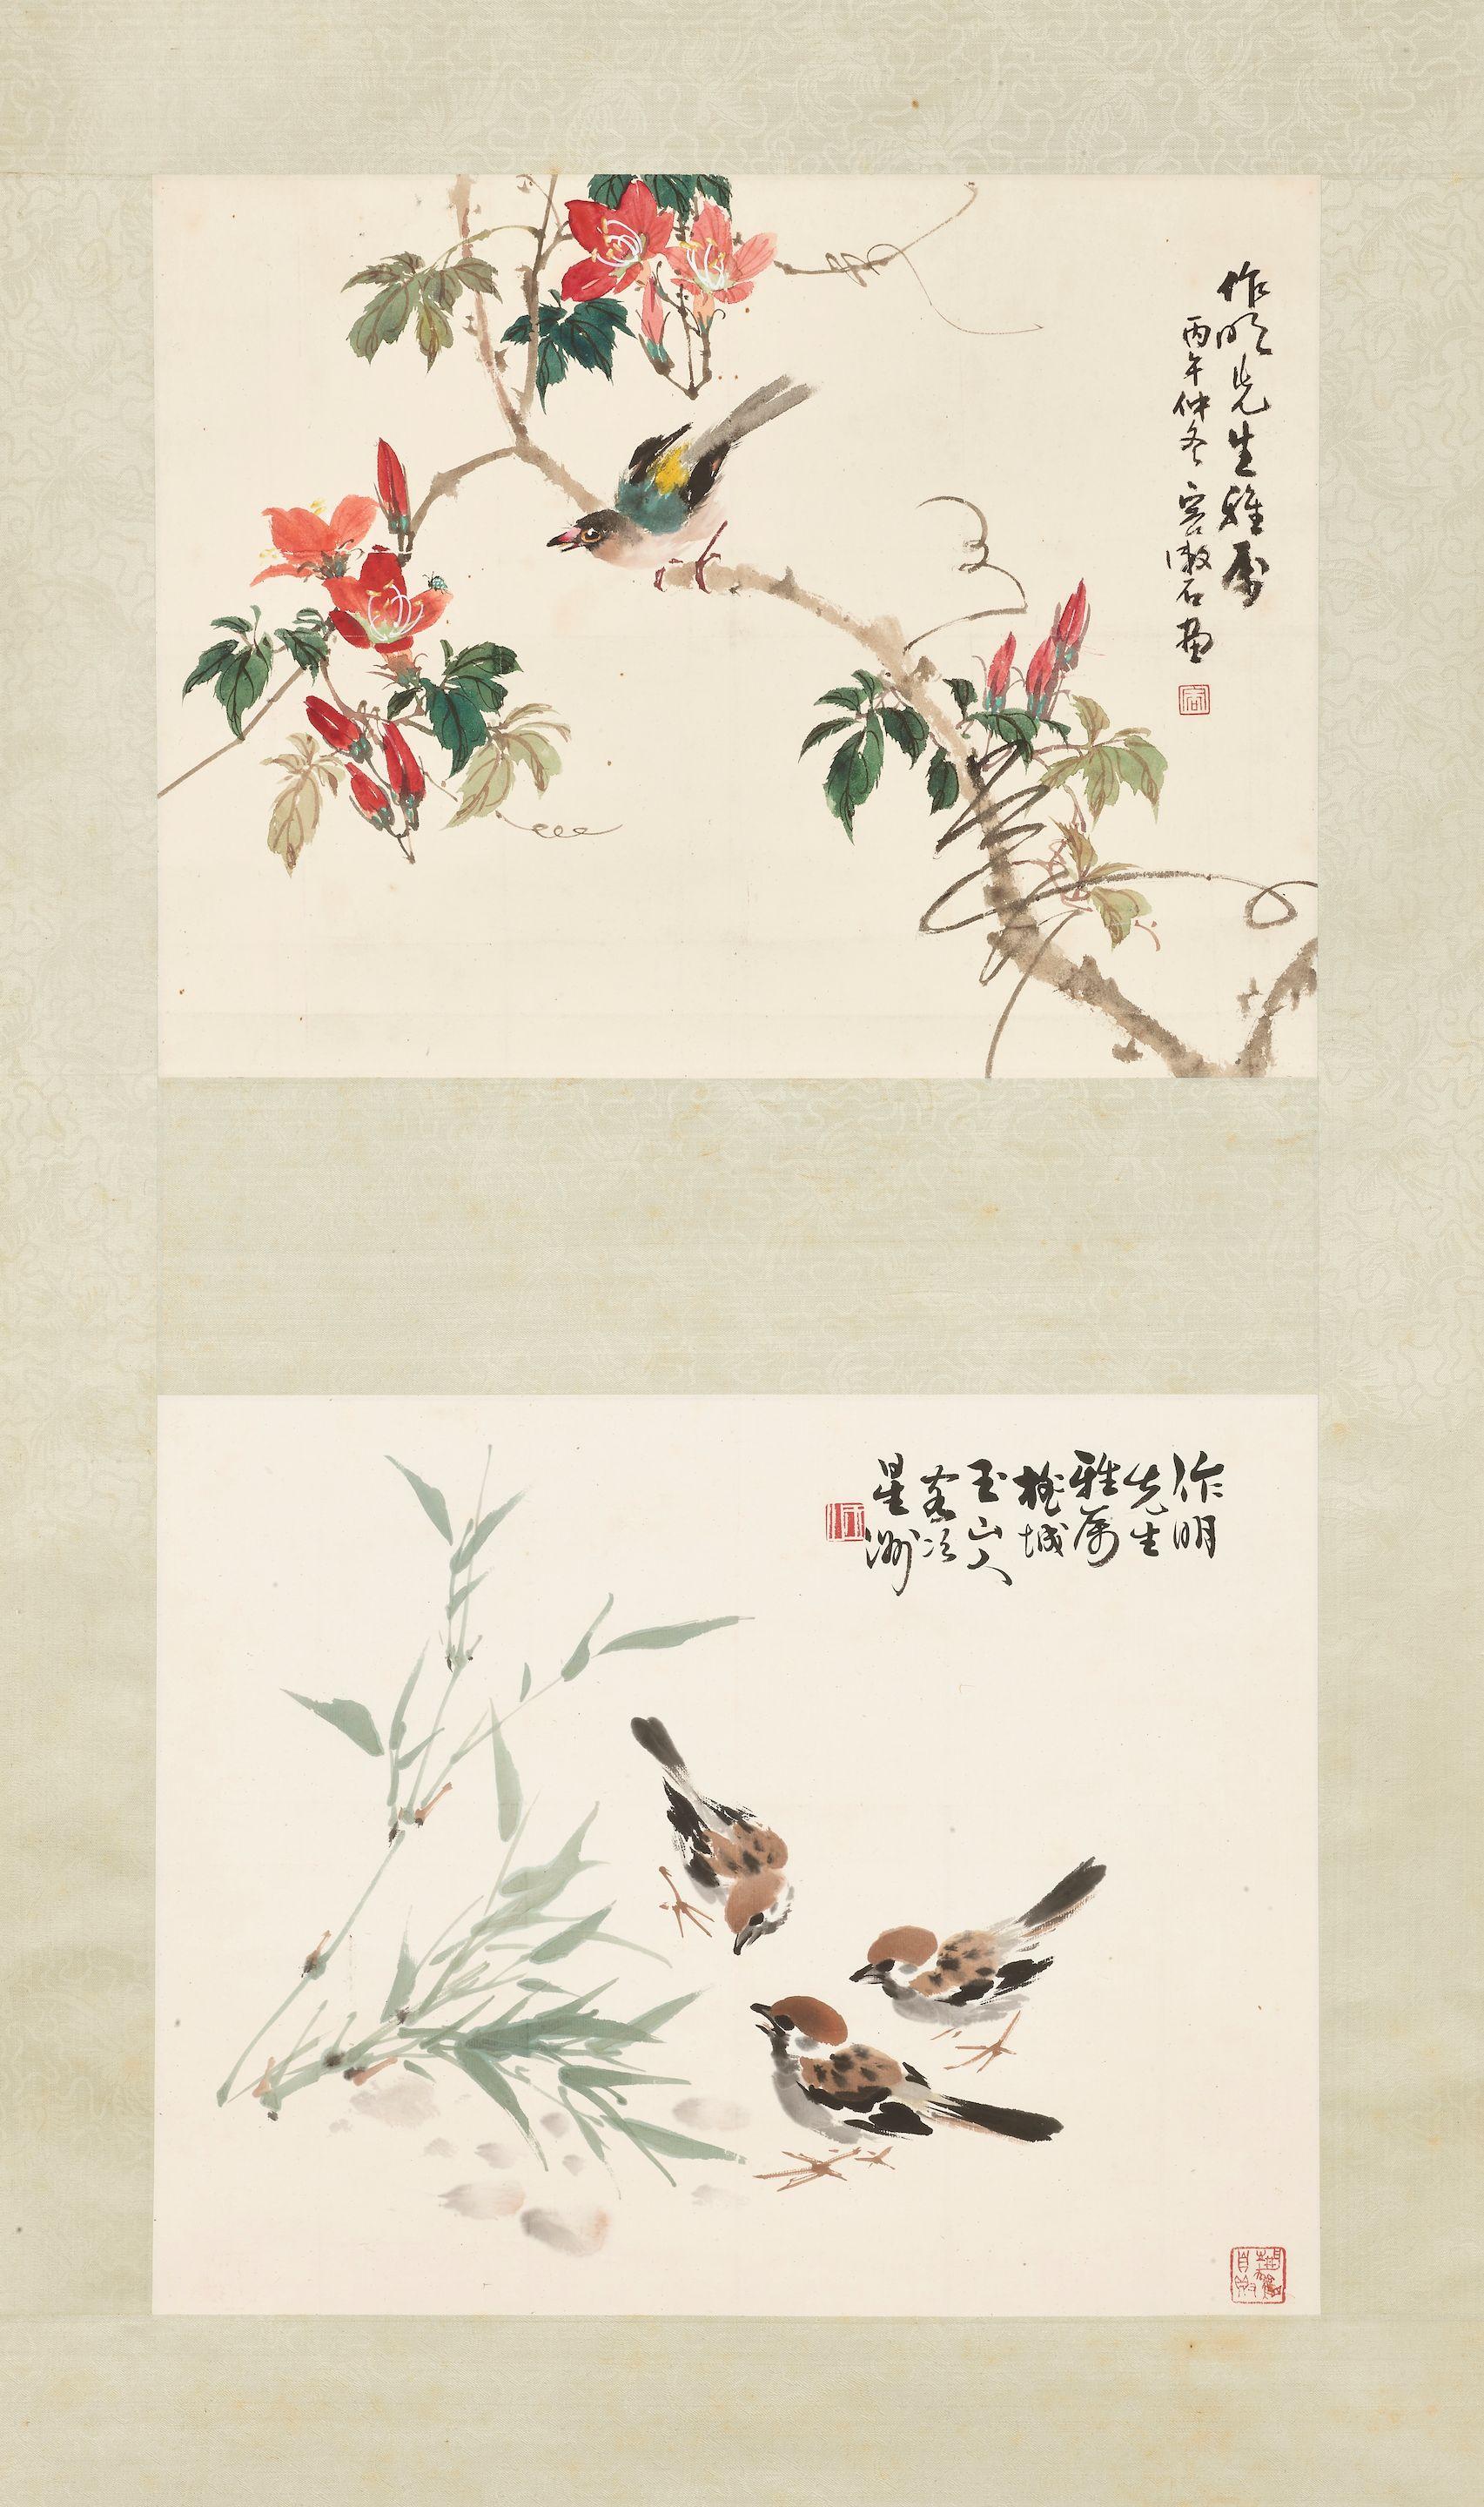 作明先生雅属
丙午仲冬 容漱石畫
作明
先生
雅属
城
玉山人
客次
星洲